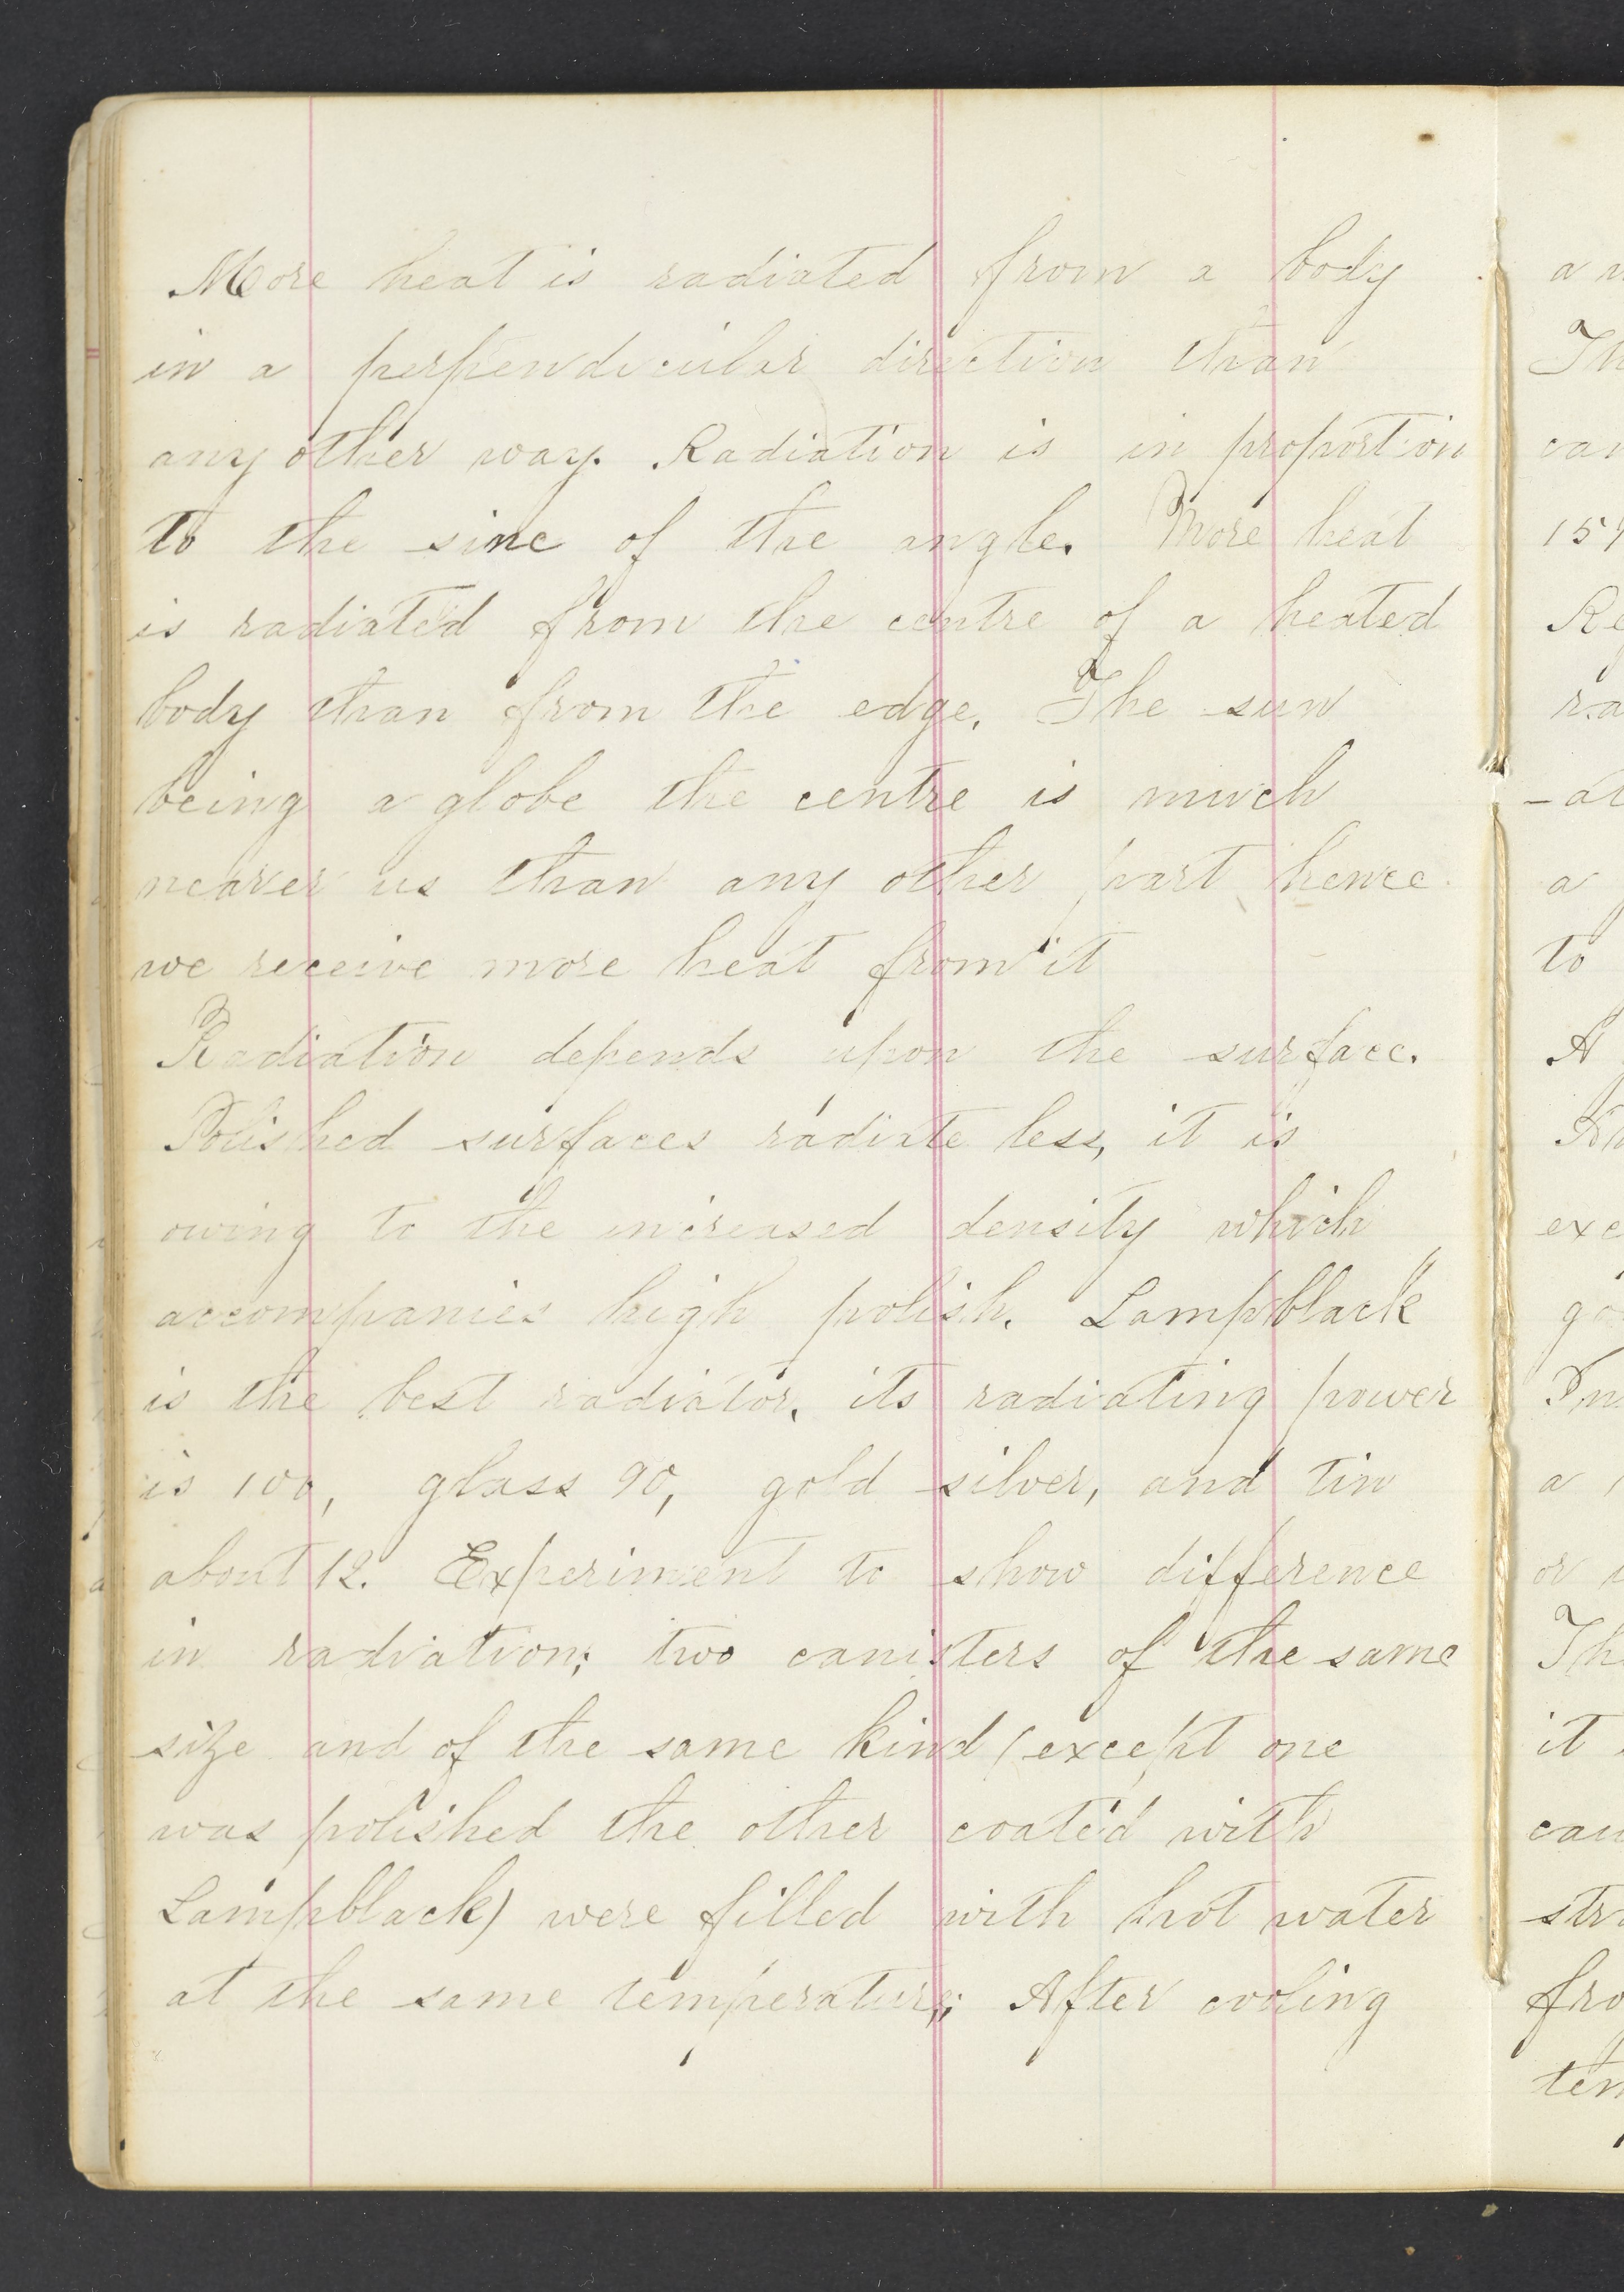 More heat is radiated from a body
in a perpendicular direction than
any other way. Radiation is in proportion
to the sine of the angle. More heat
is radiated from the centre of a heated
body than from the edge. The sun
being a globe the centre is much
nearer us than any other part hence
we receive more heat from it
Radiation depends upon the surface.
Polished surfaces radiate less, it is
owing to the increased density which
accompanies high polish. Lampblack
is the best radiator, its radiating power
is 100, glass 90, gold silver, and tin
about 12. Experiment to show difference
in radiation; two canisters of the same
size and of the same kind (except one
was polished the other coated with
Lampblack) were filled with hot water
at the same temperature; After cooling